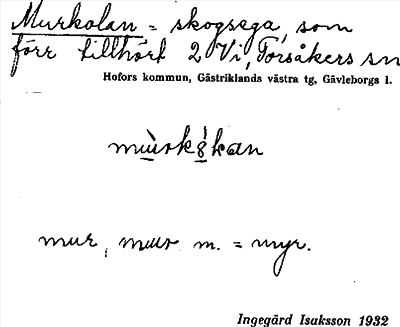 Murkolan = skogsega, som
förr tillhört 2 Vi, Torsåkers sn
Hofors kommun, Gästriklands västra tg, Gävleborgs l.
mur, muur m. = myr.
Ingegärd Isaksson 1932